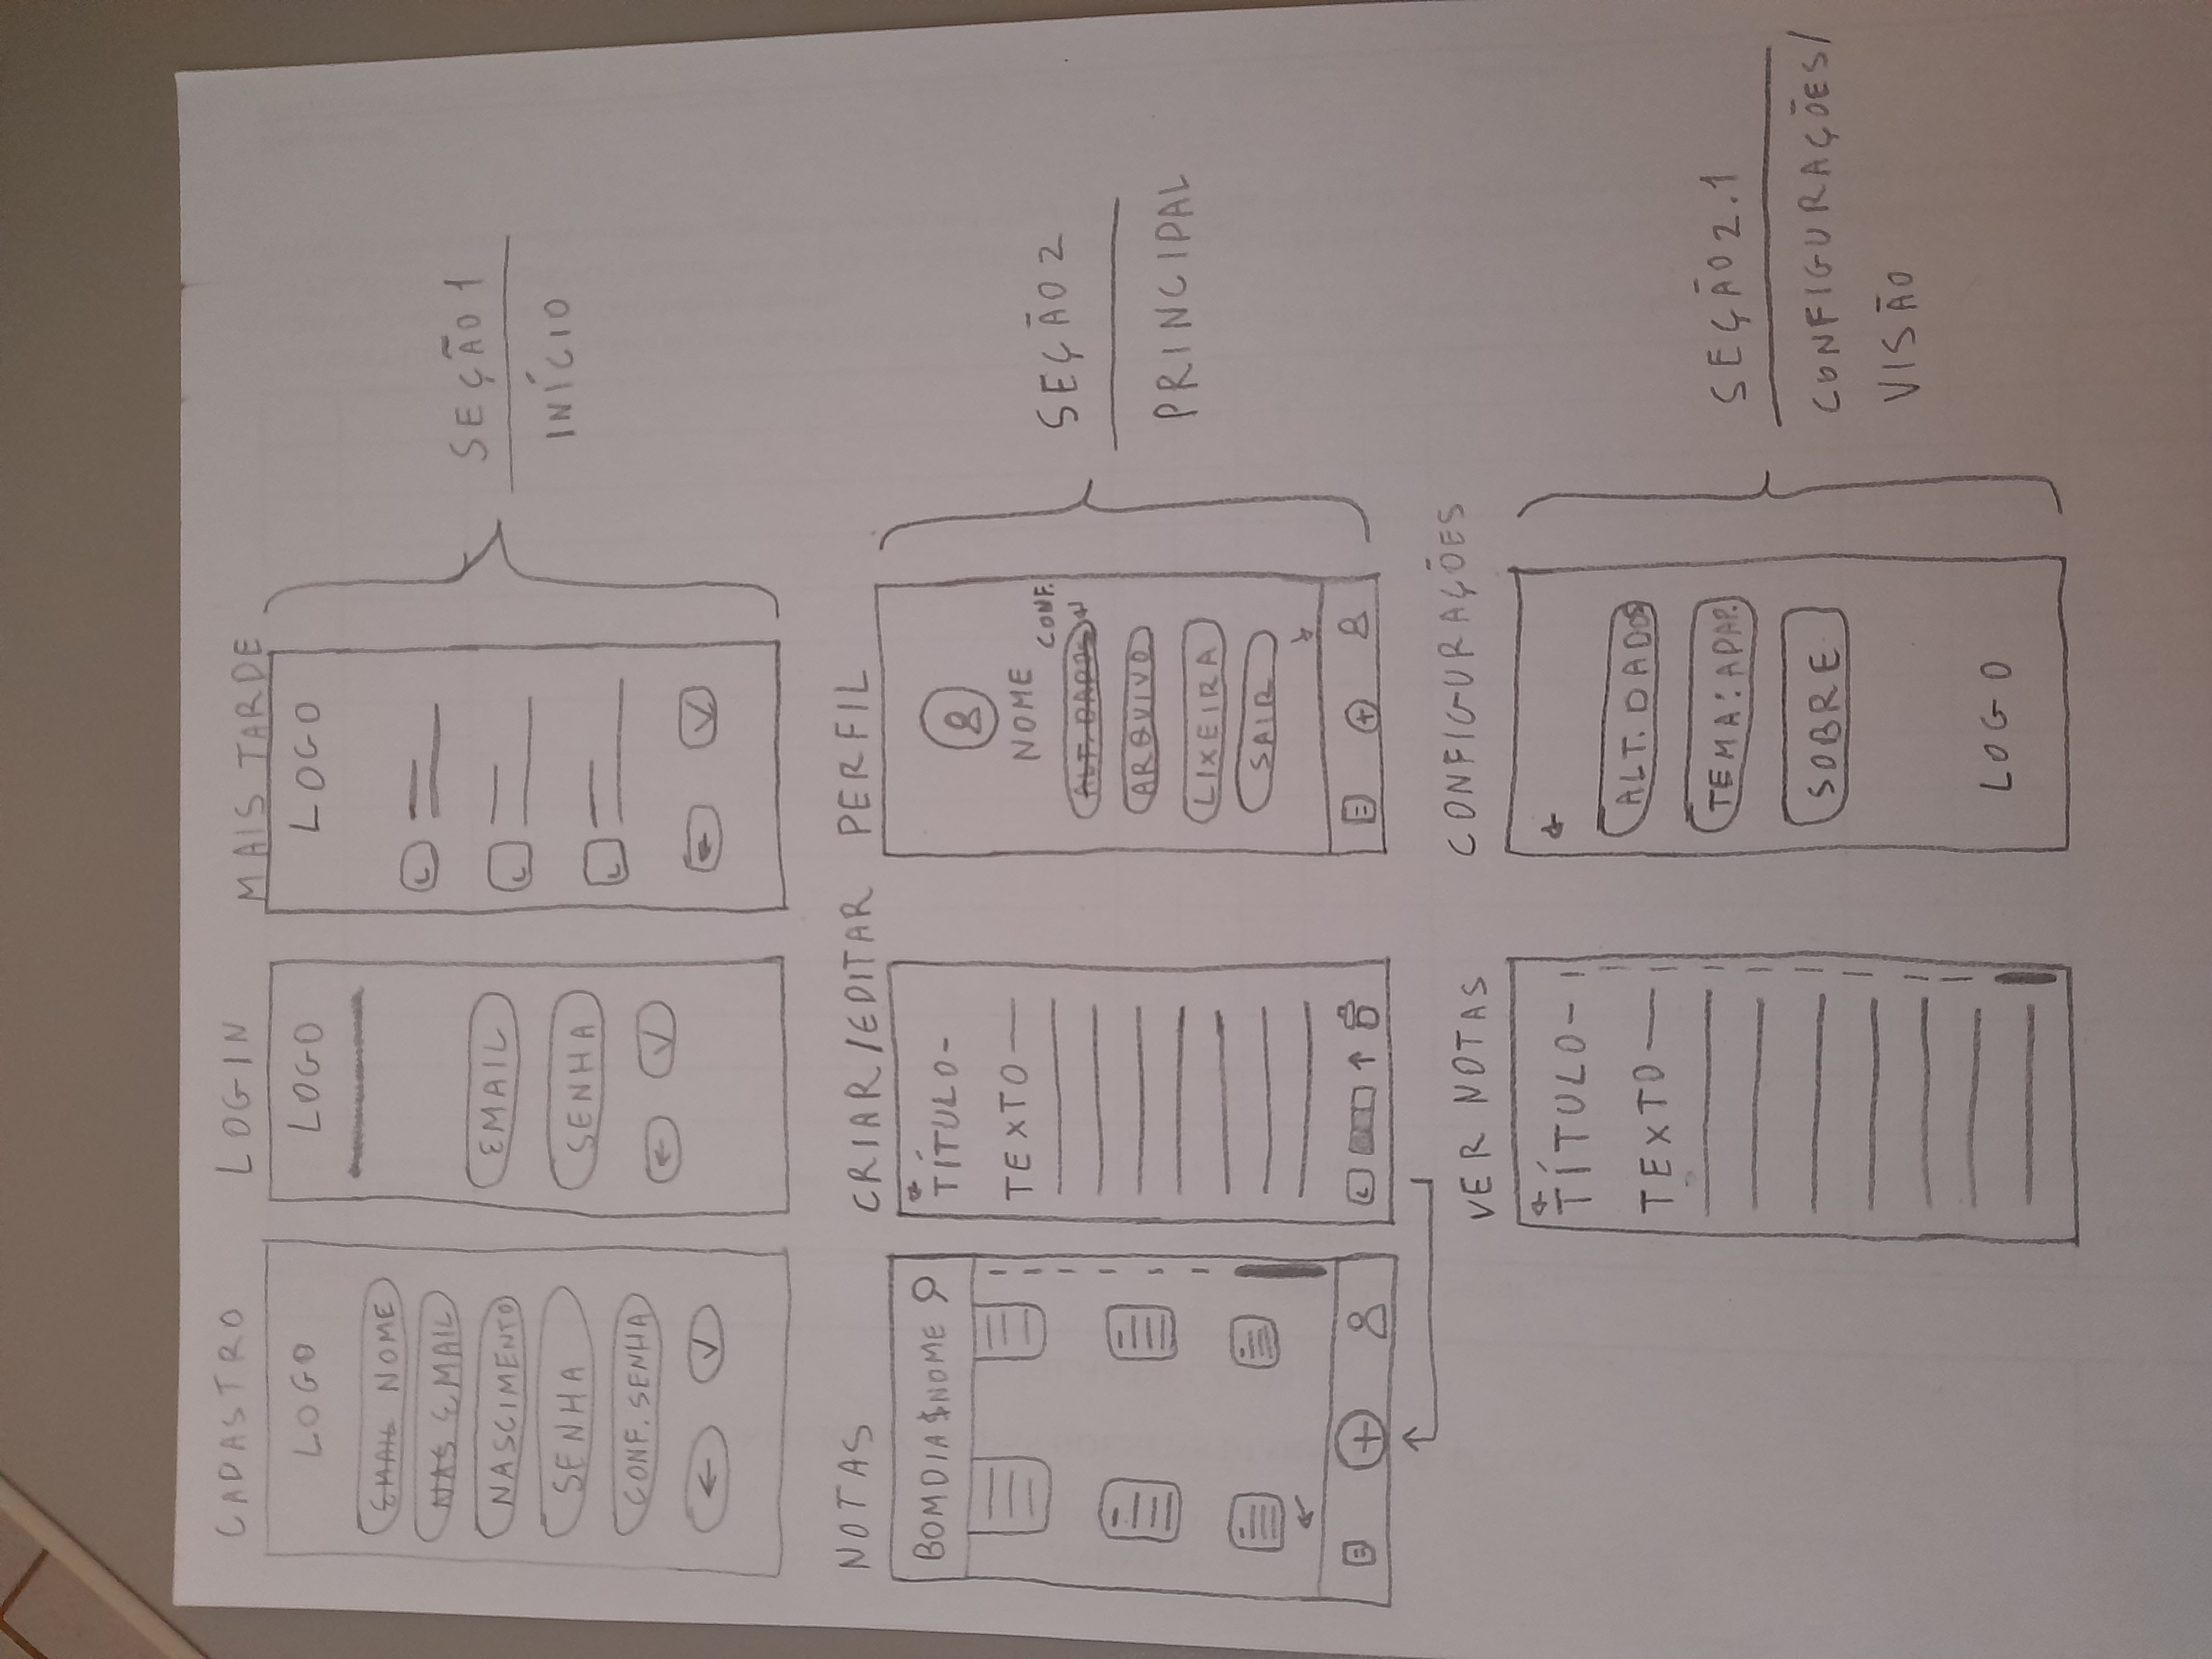 CADASTRO
LOGO
EMAIL NOME
NAS EMAIL
NASCIMENTO
SENHA
CONF. SENHA
LOGIN
LOGO
EMAIL
SENHA
MAIS TARDE
LOGO
SEÇÃO 1
INÍCIO
NOTAS
BOM DIA $NOME
CRIAR/EDITAR
TÍTULO-
TEXTO —
PERFIL
NOME
CONF.
ALT. DADOS
ARQUIVO
LIXEIRA
SAIR
SEÇÃO 2
PRINCIPAL
VER NOTAS
TÍTULO-
TEXTO —
CONFIGURAÇÕES
ALT. DADOS
TEMA: ADAP.
SOBRE
LOGO
SEÇÃO 2.1
CONFIGURAÇÕES/
VISÃO